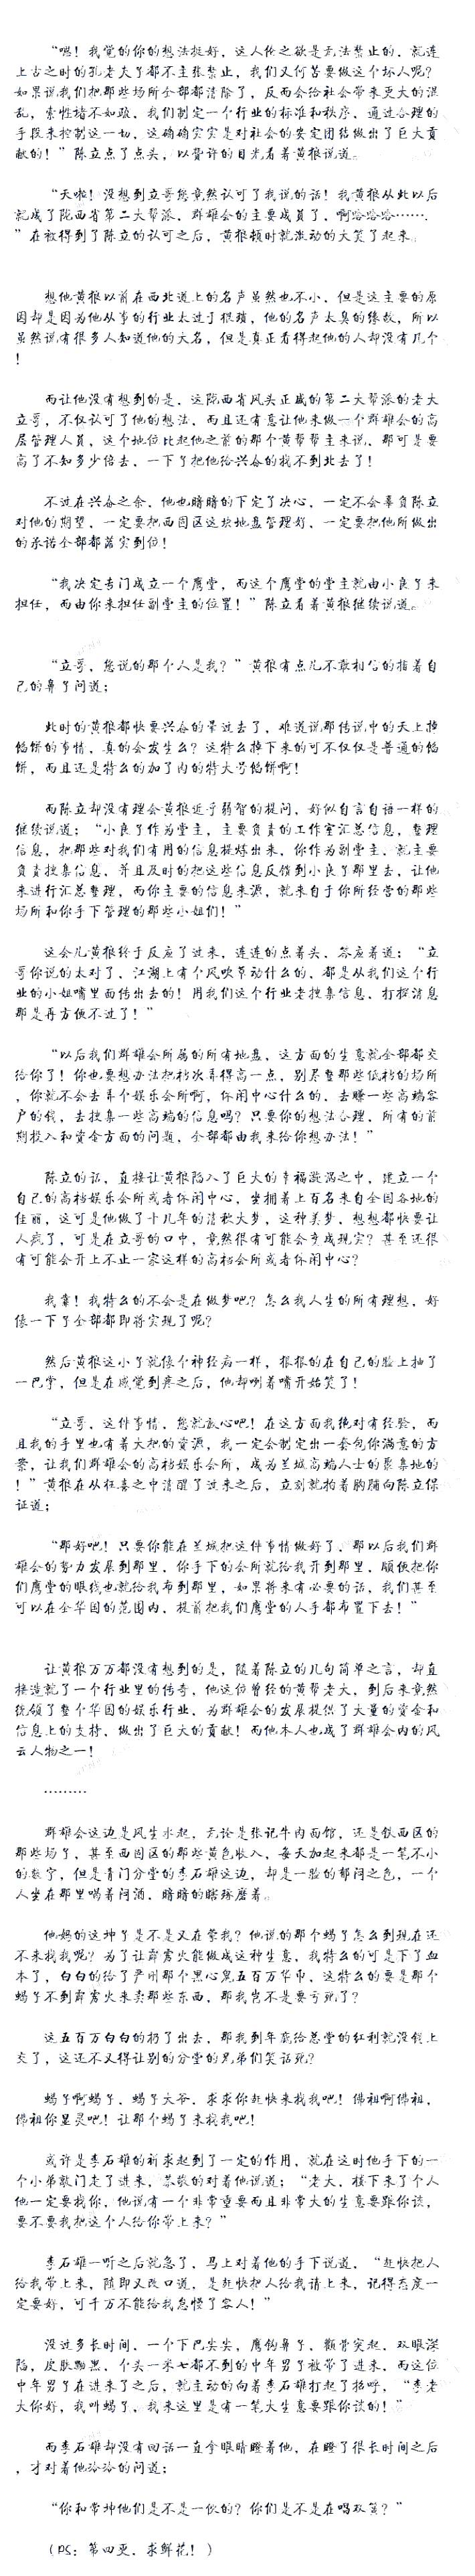 “嗯！我觉的你的想法挺好，这人伦之欲是无法禁止的，就连
上古之时的孔老夫子都不主张禁止，我们又何苦要做这个坏人呢？
如果说我们把那些场所全部都清除了，反而会给社会带来更大的混
乱，索性堵不如疏，我们制定一个行业的标准和秩序，通过合理的
手段来控制这一切，这确确实实是对社会的安定团结做出了巨大贡
献的！”陈立点了点头，以赞许的目光看着黄狼说道。
“天啦！没想到立哥您竟然认可了我说的话！我黄狼从此以后
就成了陇西省第二大帮派，群雄会的主要成员了，啊哈哈哈……．
”在被得到了陈立的认可之后，黄狼顿时就激动的大笑了起来。
想他黄狼以前在西北道上的名声虽然也不小，但是这主要的原
因却是因为他从事的行业太过于猥琐，他的名声太臭的缘故，所以
虽然说有很多人知道他的大名，但是真正看得起他的人却没有几个
！
而让他没有想到的是，这陇西省风头正盛的第二大帮派的老大
立哥，不仅认可了他的想法，而且还有意让他来做一个群雄会的高
层管理人员，这个地位比起他之前的那个黄帮帮主来说，那可是要
高了不知多少倍去，一下子把他给兴奋的找不到北去了！
不过在兴奋之余，他也暗暗的下定了决心，一定不会辜负陈立
对他的期望，一定要把西固区这块地盘管理好，一定要把他所做出
的承诺全部都落实到位！
“我决定专门成立一个鹰堂，而这个鹰堂的堂主就由小良子来
担任，而由你来担任副堂主的位置！”陈立看着黄狼继续说道。
“立哥，您说的那个人是我？”黄狼有点儿不敢相信的指着自
己的鼻子问道；
此时的黄狼都快要兴奋的晕过去了，难道说那传说中的天上掉
馅饼的事情，真的会发生么？这特么掉下来的可不仅仅是普通的馅
饼，而且还是特么的加了肉的特大号馅饼啊！
而陈立却没有理会黄狼近乎弱智的提问，好似自言自语一样的
继续说道；“小良子作为堂主，主要负责的工作室汇总信息，整理
信息，把那些对我们有用的信息提炼出来，你作为副堂主，就主要
负责搜集信息，并且及时的把这些信息反馈到小良子那里去，让他
来进行汇总整理，而你主要的信息来源，就来自于你所经营的那些
场所和你手下管理的那些小姐们！”
这会儿黄狼终于反应了过来，连连的点着头，答应着道；“立
哥你说的太对了，江湖上有个风吹草动什么的，都是从我们这个行
业的小姐嘴里面传出去的！用我们这个行业老搜集信息，打探消息
那是再方便不过了！”
“以后我们群雄会所属的所有地盘，这方面的生意就全部都交
给你了！你也要想办法把档次弄得高一点，别尽整那些低档的场所
，你就不会去弄个娱乐会所啊，休闲中心什么的，去赚一些高端客
户的钱，去搜集一些高端的信息吗？只要你的想法合理，所有的前
期投入和资金方面的问题，全部都由我来给你想办法！”
陈立的话，直接让黄狼陷入了巨大的幸福漩涡之中，建立一个
自己的高档娱乐会所或者休闲中心，坐拥着上百名来自全国各地的
佳丽，这可是他做了十几年的清秋大梦，这种美梦，想想都快要让
人疯了，可是在立哥的口中，竟然很有可能会变成现实？甚至还很
有可能会开上不止一家这样的高档会所或者休闲中心？
我靠！我特么的不会是在做梦吧？怎么我人生的所有理想，好
像一下子全部都即将实现了呢？
然后黄狼这小子就像个神经病一样，狠狠的在自己的脸上抽了
一巴掌，但是在感觉到疼之后，他却咧着嘴开始笑了！
“立哥，这件事情，您就放心吧！在这方面我绝对有经验，而
且我的手里也有着大把的资源，我一定会制定出一套包你满意的方
案，让我们群雄会的高档娱乐会所，成为兰城高端人士的聚集地的
！”黄狼在从狂喜之中清醒了过来之后，立刻就拍着胸脯向陈立保
证道；
“那好吧！只要你能在兰城把这件事情做好了，那以后我们群
雄会的势力发展到那里，你手下的会所就给我开到那里，顺便把你
们鹰堂的眼线也就给我布到那里，如果将来有必要的话，我们甚至
可以在全华国的范围内，提前把我们鹰堂的人手都布置下去！”
让黄狼万万都没有想到的是，随着陈立的几句简单之言，却直
接造就了一个行业里的传奇，他这位曾经的黄帮老大，到后来竟然
统领了整个华国的娱乐行业，为群雄会的发展提供了大量的资金和
信息上的支持，做出了巨大的贡献！而他本人也成了群雄会内的风
云人物之一！
………
群雄会这边是风生水起，无论是张记牛肉面馆，还是铁西区的
那些场子，甚至西固区的那些黄色收入，每天加起来都是一笔不小
的数字，但是青门分堂的李石雄这边，却是一脸的郁闷之色，一个
人坐在那里喝着闷酒，暗暗的瞎琢磨着。
他妈的这坤子是不是又在蒙我？他说的那个蝎子怎么到现在还
不来找我呢？为了让霹雳火能做成这种生意，我特么的可是下了血
本了，白白的给了严州那个黑心鬼五百万华币，这特么的要是那个
蝎子不到霹雳火来卖那些东西，那我岂不是要亏死了？
这五百万白白的扔了出去，那我到年底给总堂的红利就没钱上
交了，这还不又得让别的分堂的兄弟们笑话死？
蝎子啊蝎子，蝎子大爷，求求你赶快来找我吧！佛祖啊佛祖，
佛祖你显灵吧！让那个蝎子来找我吧！
或许是李石雄的祈求起到了一定的作用，就在这时他手下的一
个小弟敲门走了进来，恭敬的对着他说道；“老大，楼下来了个人
他一定要找你，他说有一个非常重要而且非常大的生意要跟你谈，
要不要我把这个人给你带上来？”
李石雄一听之后就急了，马上对着他的手下说道，“赶快把人
给我带上来，随即又改口道，是赶快把人给我请上来，记得态度一
定要好，可千万不能给我怠慢了客人！”
没过多长时间，一个下巴尖尖，鹰钩鼻子，颧骨突起，双眼深
陷，皮肤黝黑，个头一米七都不到的中年男子被带了进来，而这位
中年男子在进来了之后，就主动的向着李石雄打起了招呼，“李老
大你好，我叫蝎子，我来这里是有一笔大生意要跟你谈的！”
而李石雄却没有回话一直拿眼睛瞪着他，在瞪了很长时间之后
，才对着他冷冷的问道；
“你和常坤他们是不是一伙的？你们是不是在唱双簧？”
（PS：第四更，求鲜花！）